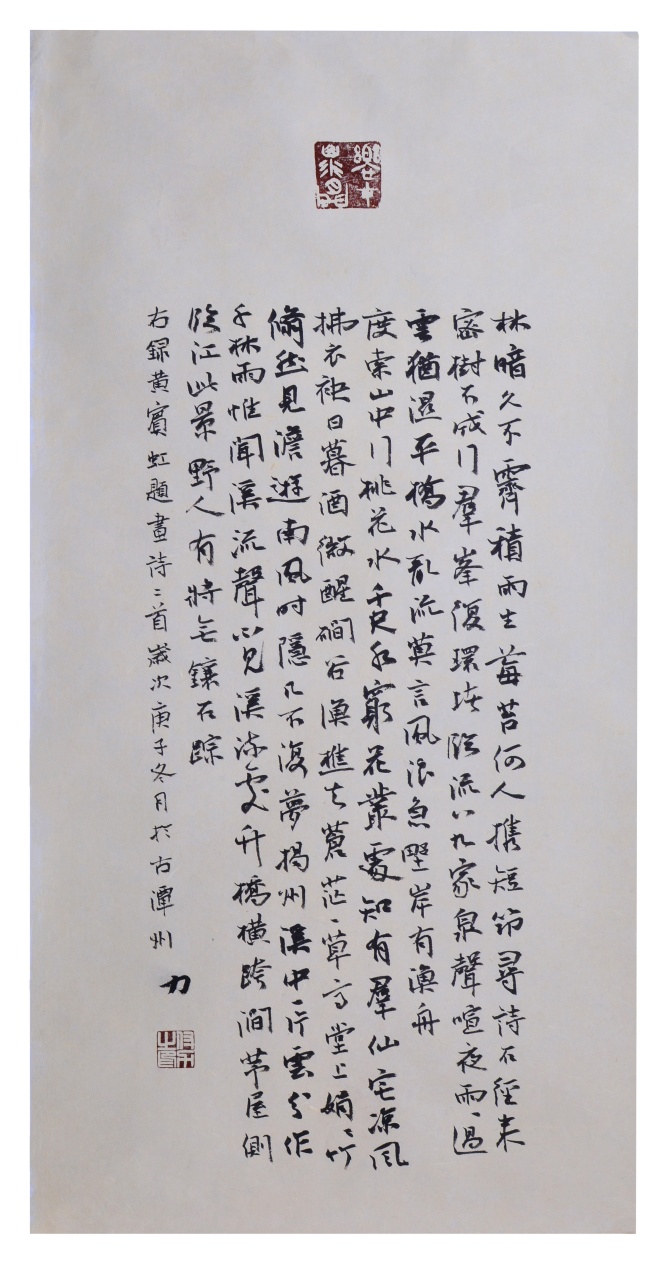 林暗久不霽積雨生莓苔何人携短笻尋詩石徑来
密樹不成行羣峯復環堵臨流八九家泉聲喧夜雨雨過
雲猶濕平橋水亂流莫言風浪急野岸有漁舟
度索山中行桃花水千尺水窮花叢處知有羣仙宅凉風
拂衣袂日暮酒微醒磵谷漁樵去蒼茫茫草亭堂上娟娟竹
翛然見澹遊南風時隱几不復夢揚州溪中一片雲分作
千林雨惟聞溪流聲不見溪流處竹橋橫跨澗茅屋側
臨江此景野人有將無鑲石踪
右録黄賓虹題畫詩二首歲次庚子冬月於古潭州 力